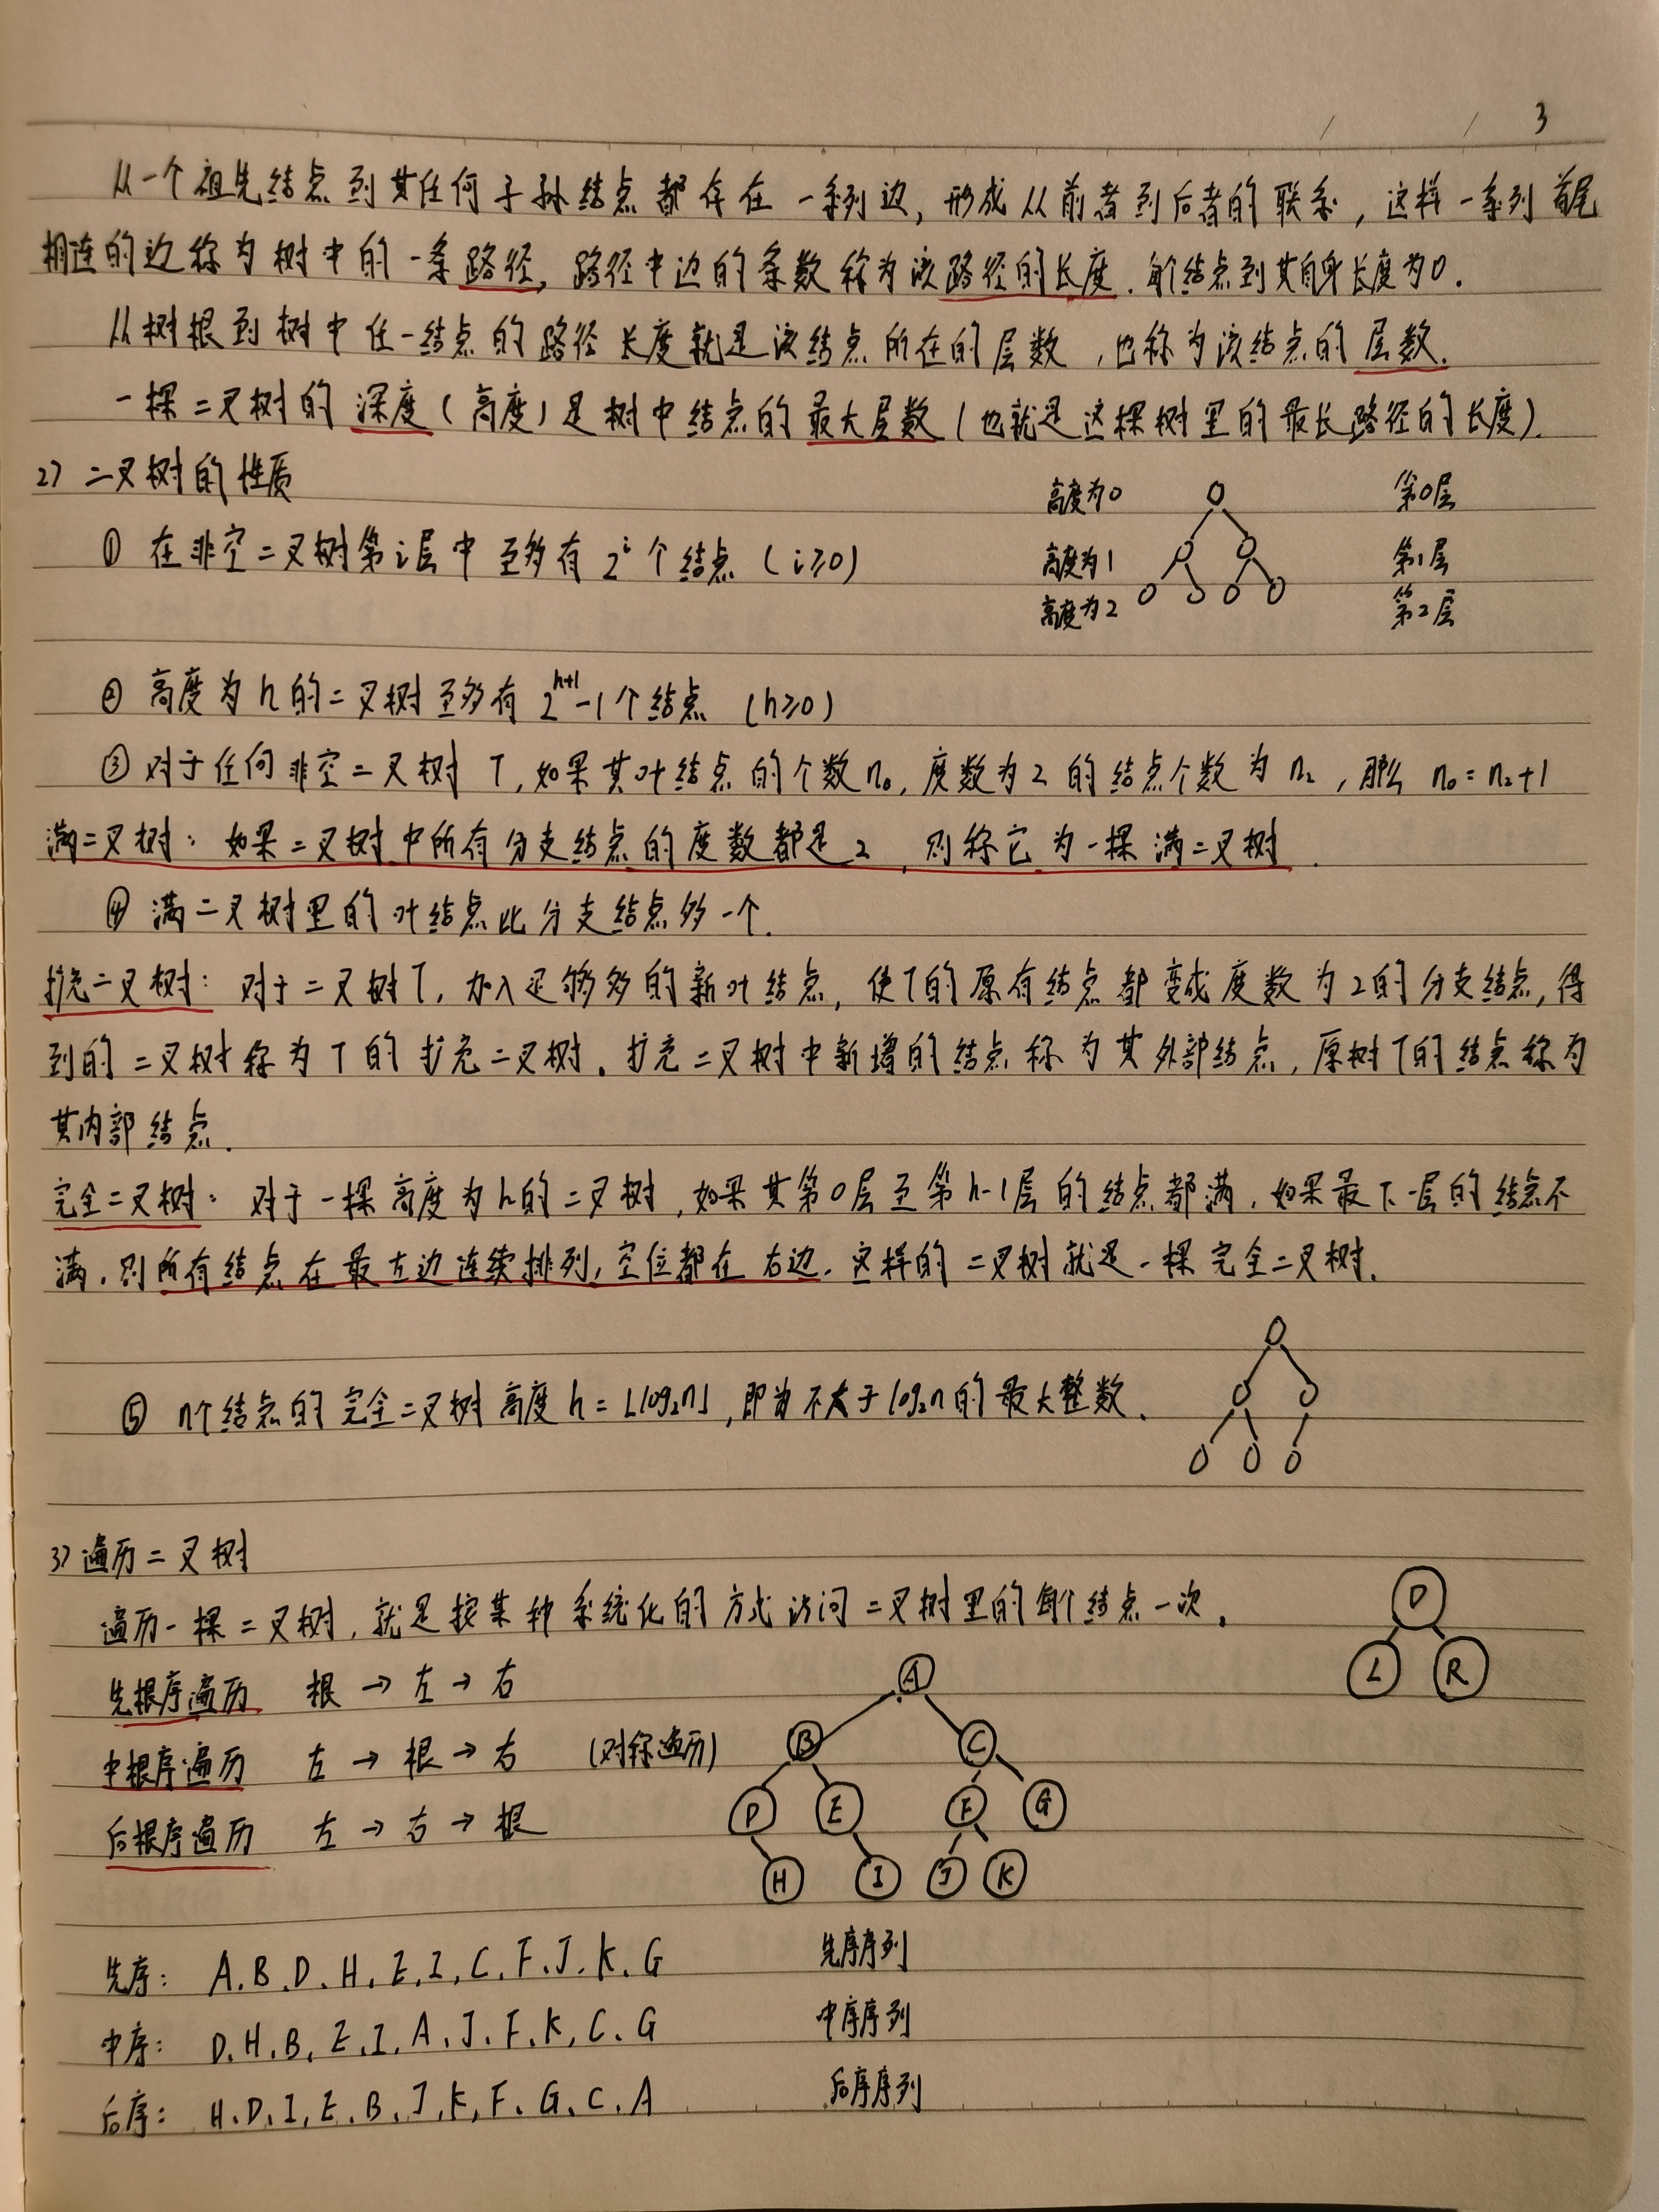 3
从一个祖先结点到其任何子孙结点都存在一系列边,形成从前者到后者的联系,这样一系列首尾
相连的边称为树中的一条路径,路径中边的条数称为该路径的长度.每个结点到其自身长度为0.
从树根到树中任一结点的路径长度就是该结点所在的层数,也称为该结点的层数.
一棵二叉树的深度(高度)是树中结点的最大层数(也就是这棵树里的最长路径的长度).
2) 二叉树的性质
高度为0 第0层
① 在非空二叉树第i层中至多有 2^i 个结点 (i≥0)
高度为1 第1层
高度为2 第2层
② 高度为h的二叉树至多有 2^{h+1}-1个结点 (h≥0)
③ 对于任何非空二叉树 T,如果其叶结点的个数n₀,度数为2的结点个数为 n₂,那么 n₀=n₂+1
满二叉树: 如果二叉树中所有分支结点的度数都是2,则称它为一棵满二叉树.
④ 满二叉树里的叶结点比分支结点多一个.
扩充二叉树: 对于二叉树T,加入足够多的新叶结点,使T的原有结点都变成度数为2的分支结点,得
到的二叉树称为T的扩充二叉树.扩充二叉树中新增的结点称为其外部结点,原树T的结点称为
其内部结点.
完全二叉树: 对于一棵高度为h的二叉树,如果其第0层至第h-1层的结点都满.如果最下一层的结点不
满.则所有结点在最左边连续排列,空位都在右边.这样的二叉树就是一棵完全二叉树.
⑤ n个结点的完全二叉树高度h=⌊log₂n⌋,即为不大于log₂n的最大整数.
3) 遍历二叉树
遍历一棵二叉树,就是按某种系统化的方式访问二叉树里的每个结点一次.
D
L R
先根序遍历 根→左→右
A
中根序遍历 左→根→右 (对称遍历)
B C
后根序遍历 左→右→根
D E F G
H I J K
先序: A.B.D.H.E.I.C.F.J.K.G 先序序列
中序: D.H.B.E.I.A.J.F.K.C.G 中序序列
后序: H.D.I.E.B.J.K.F.G.C.A 后序序列